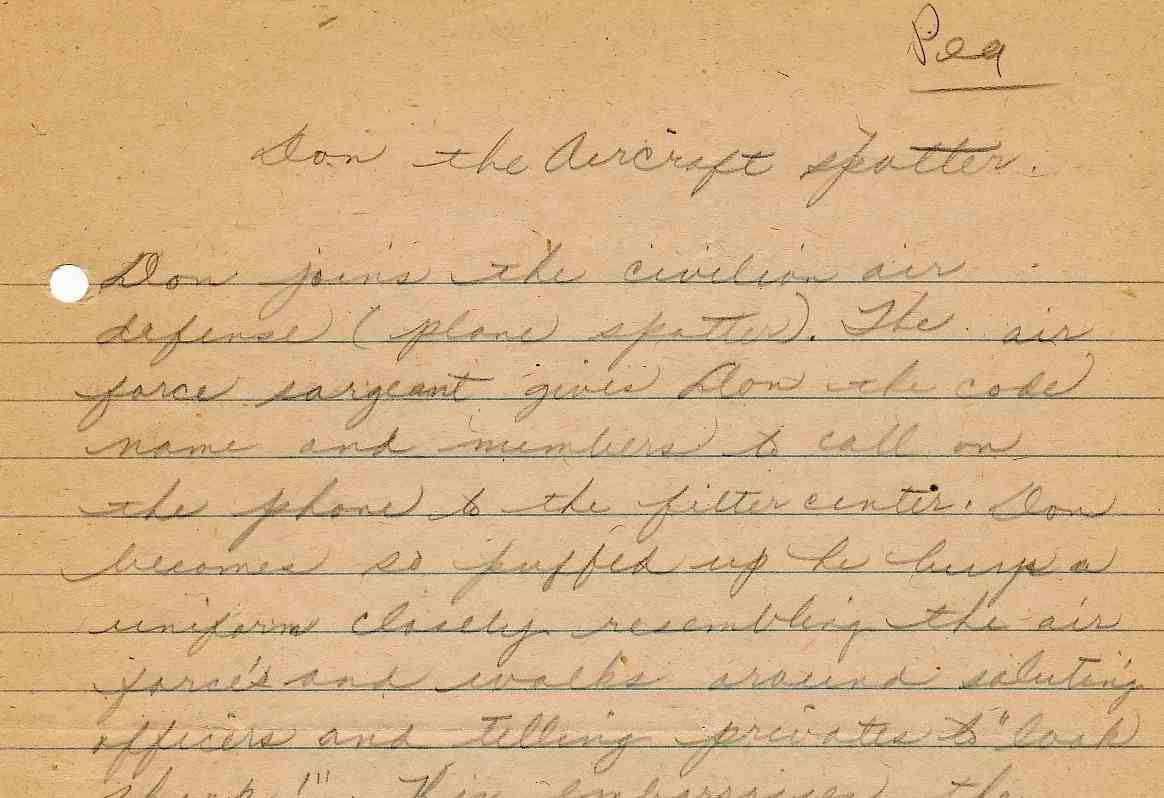 Peg
Don the Aircraft spotter.
Don joins the civilian air
defense (plane spotter). The air
force sargeant gives Don the code
name and members to call on
the phone to the filter center. Don
becomes so puffed up he buys a
uniform closely resembling the air
force's and walks around saluting
officers and telling privates to "look
sharp!" This embarrasses the